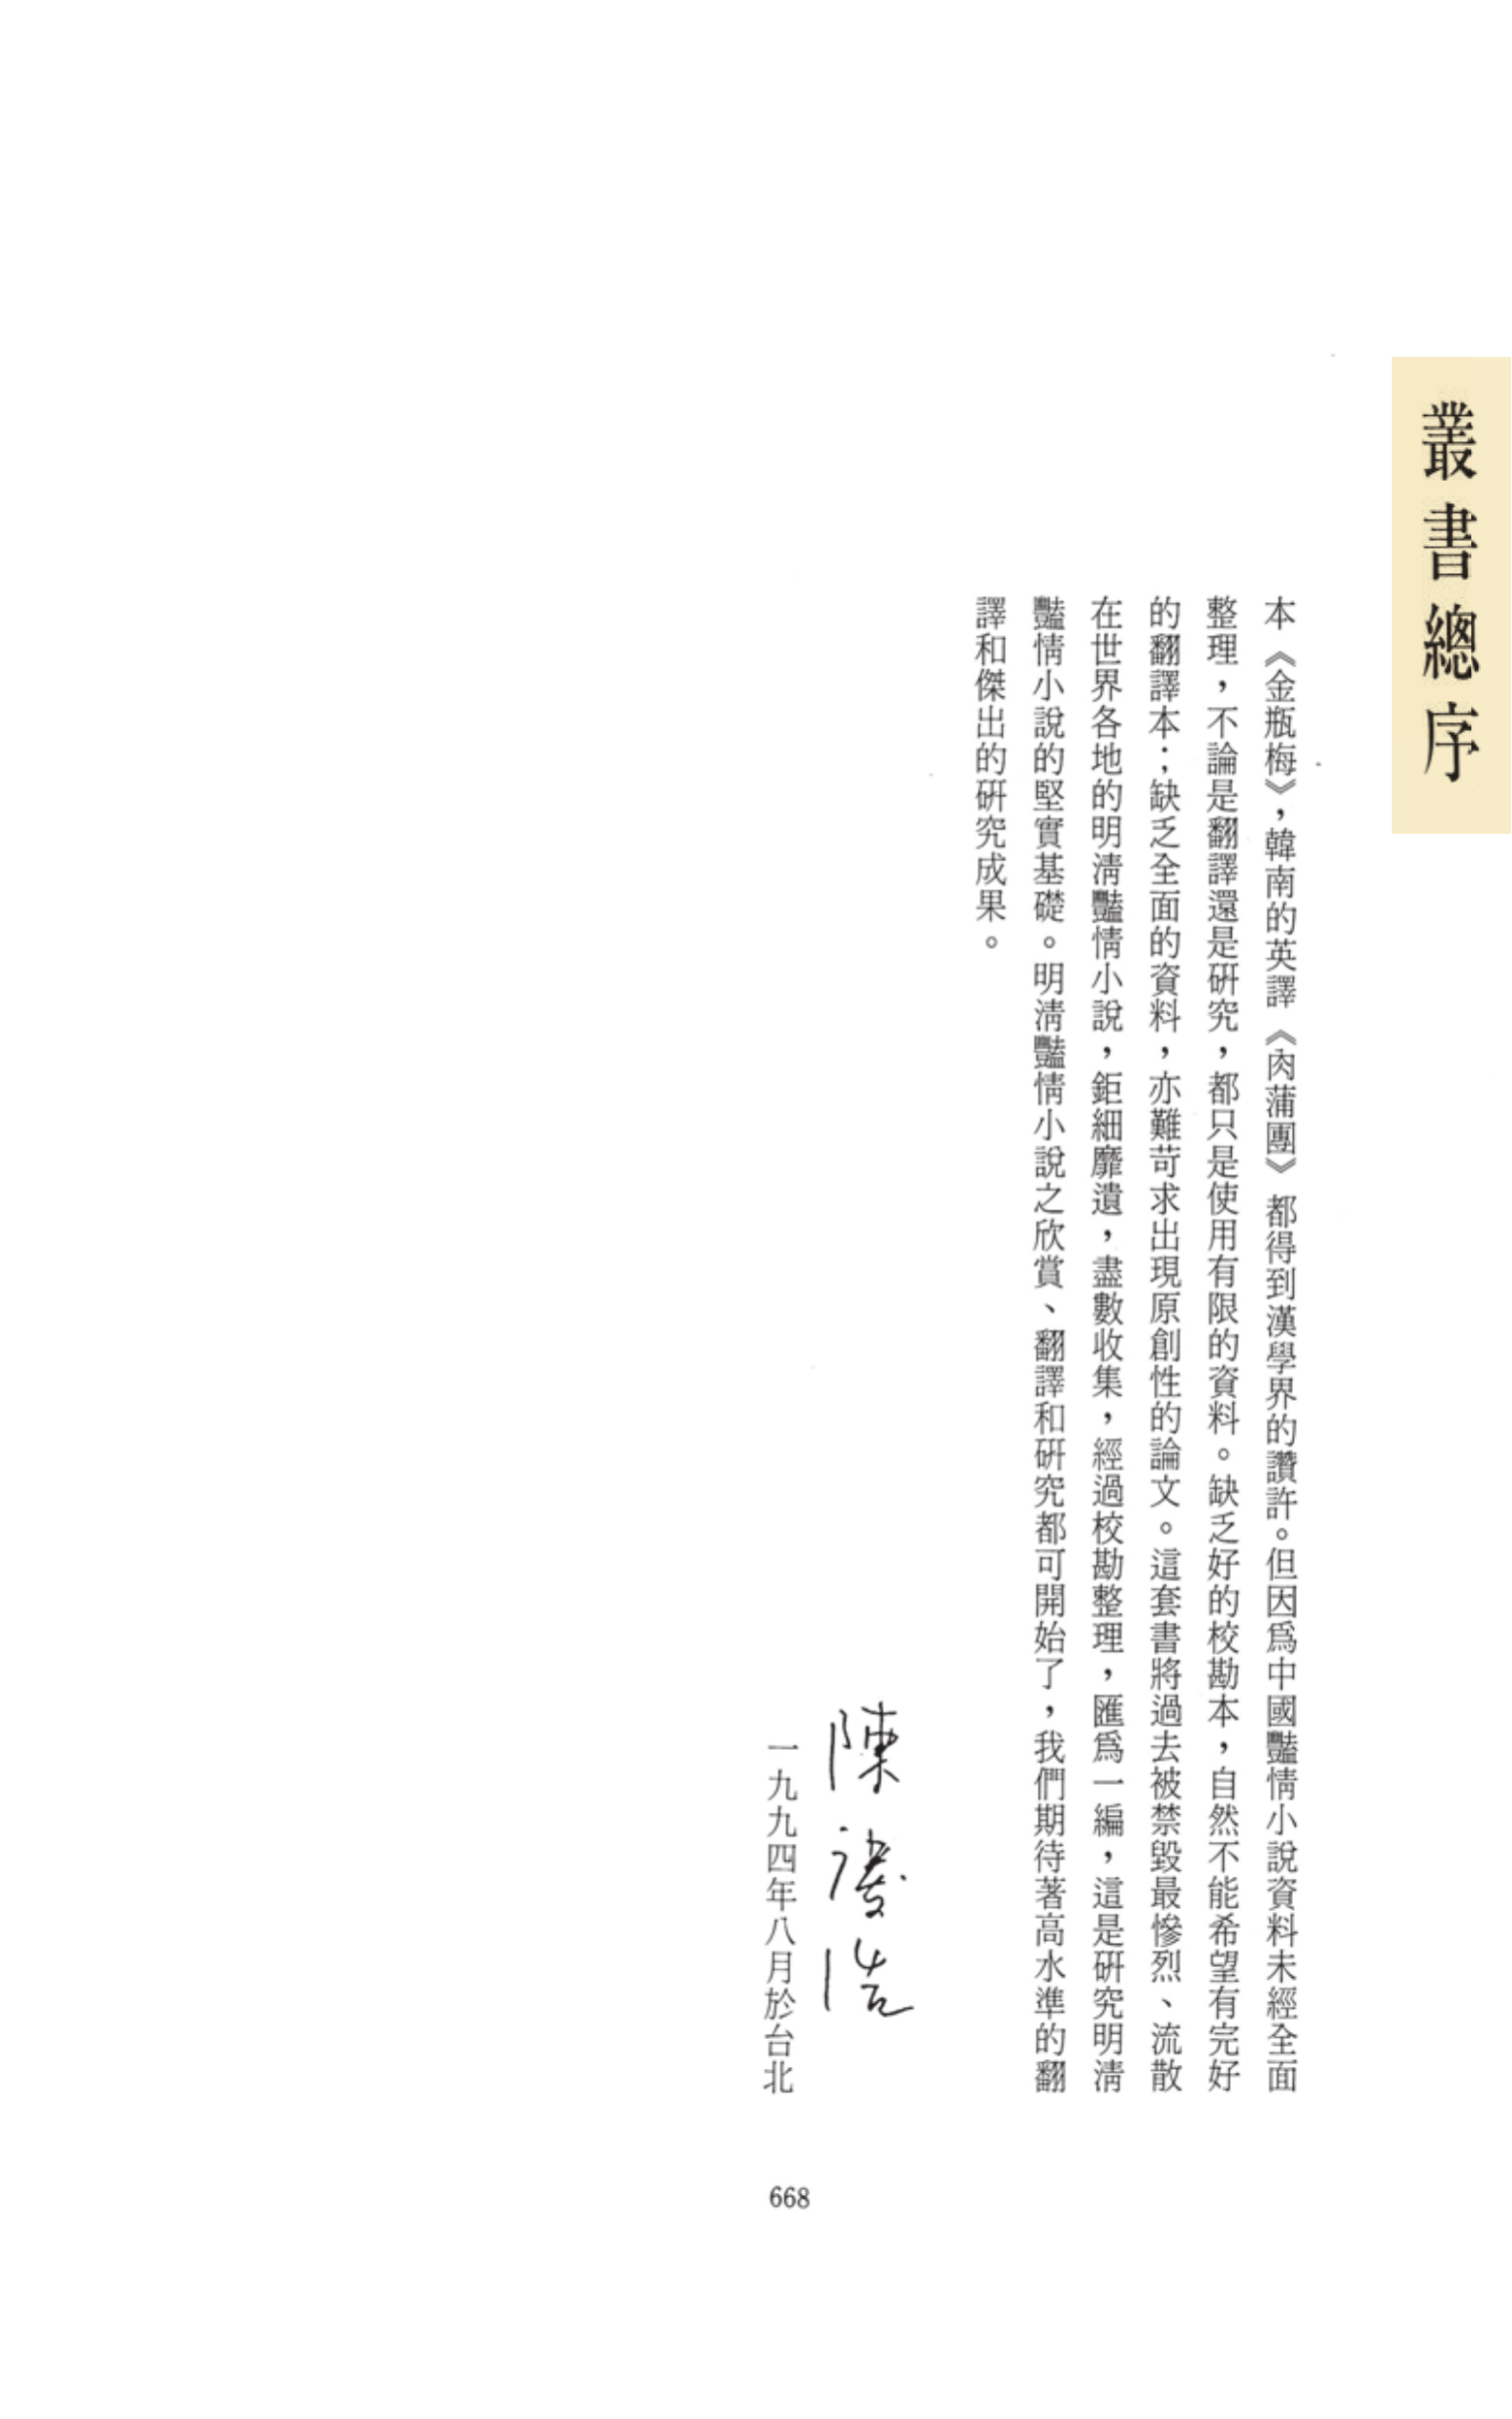 叢書總序
本《金瓶梅》，韓南的英譯《肉蒲團》都得到漢學界的讚許。但因爲中國豔情小說資料未經全面
整理，不論是翻譯還是研究，都只是使用有限的資料。缺乏好的校勘本，自然不能希望有完好
的翻譯本；缺乏全面的資料，亦難苛求出現原創性的論文。這套書將過去被禁毀最慘烈、流散
在世界各地的明淸豔情小說，鉅細靡遺，盡數收集，經過校勘整理，匯爲一編，這是研究明淸
豔情小說的堅實基礎。明淸豔情小說之欣賞、翻譯和研究都可開始了，我們期待著高水準的翻
譯和傑出的研究成果。
陳慶浩
一九九四年八月於台北
668